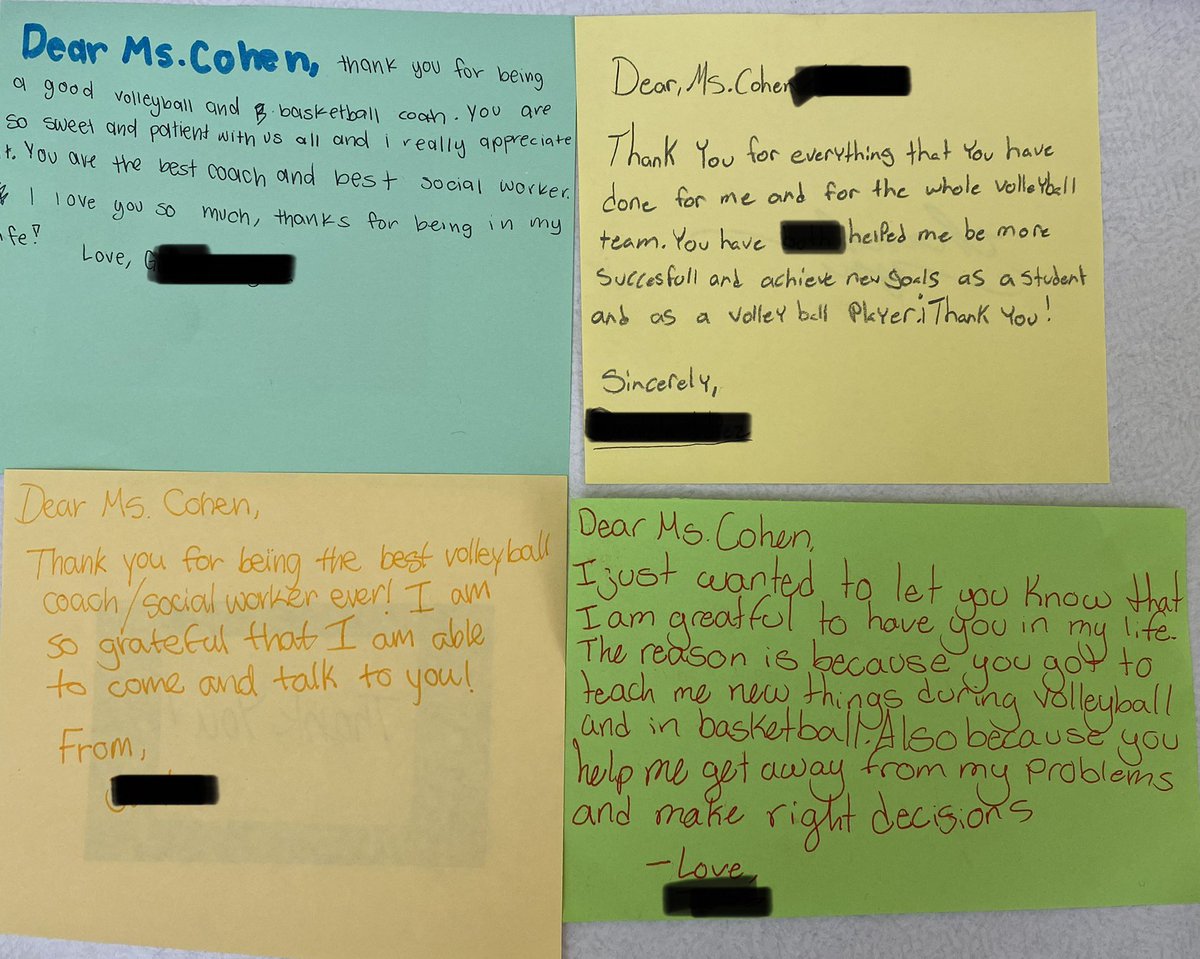 Dear Ms. Cohen, thank you for being
a good volleyball and basketball coach. You are
so sweet and patient with us all and i really appreciate
t. You are the best coach and best social worker.
I love you so much, thanks for being in my
ife!
Love, G
Dear, Ms. Cohen
Thank You for everything that You have
done for me and for the whole volleyball
team. You have helped me be more
succesfull and achieve new goals as a student
and as a volley ball Player. ¡Thank You!
Sincerely,
Dear Ms. Cohen,
Thank you for being the best volleyball
coach/social worker ever! I am
so grateful that I am able
to come and talk to you!
From,
Dear Ms. Cohen,
I just wanted to let you know that
I am greatful to have you in my life.
The reason is because you got to
teach me new things during volleyball
and in basketball. Also because you
help me get away from my problems
and make right decisions
- Love,